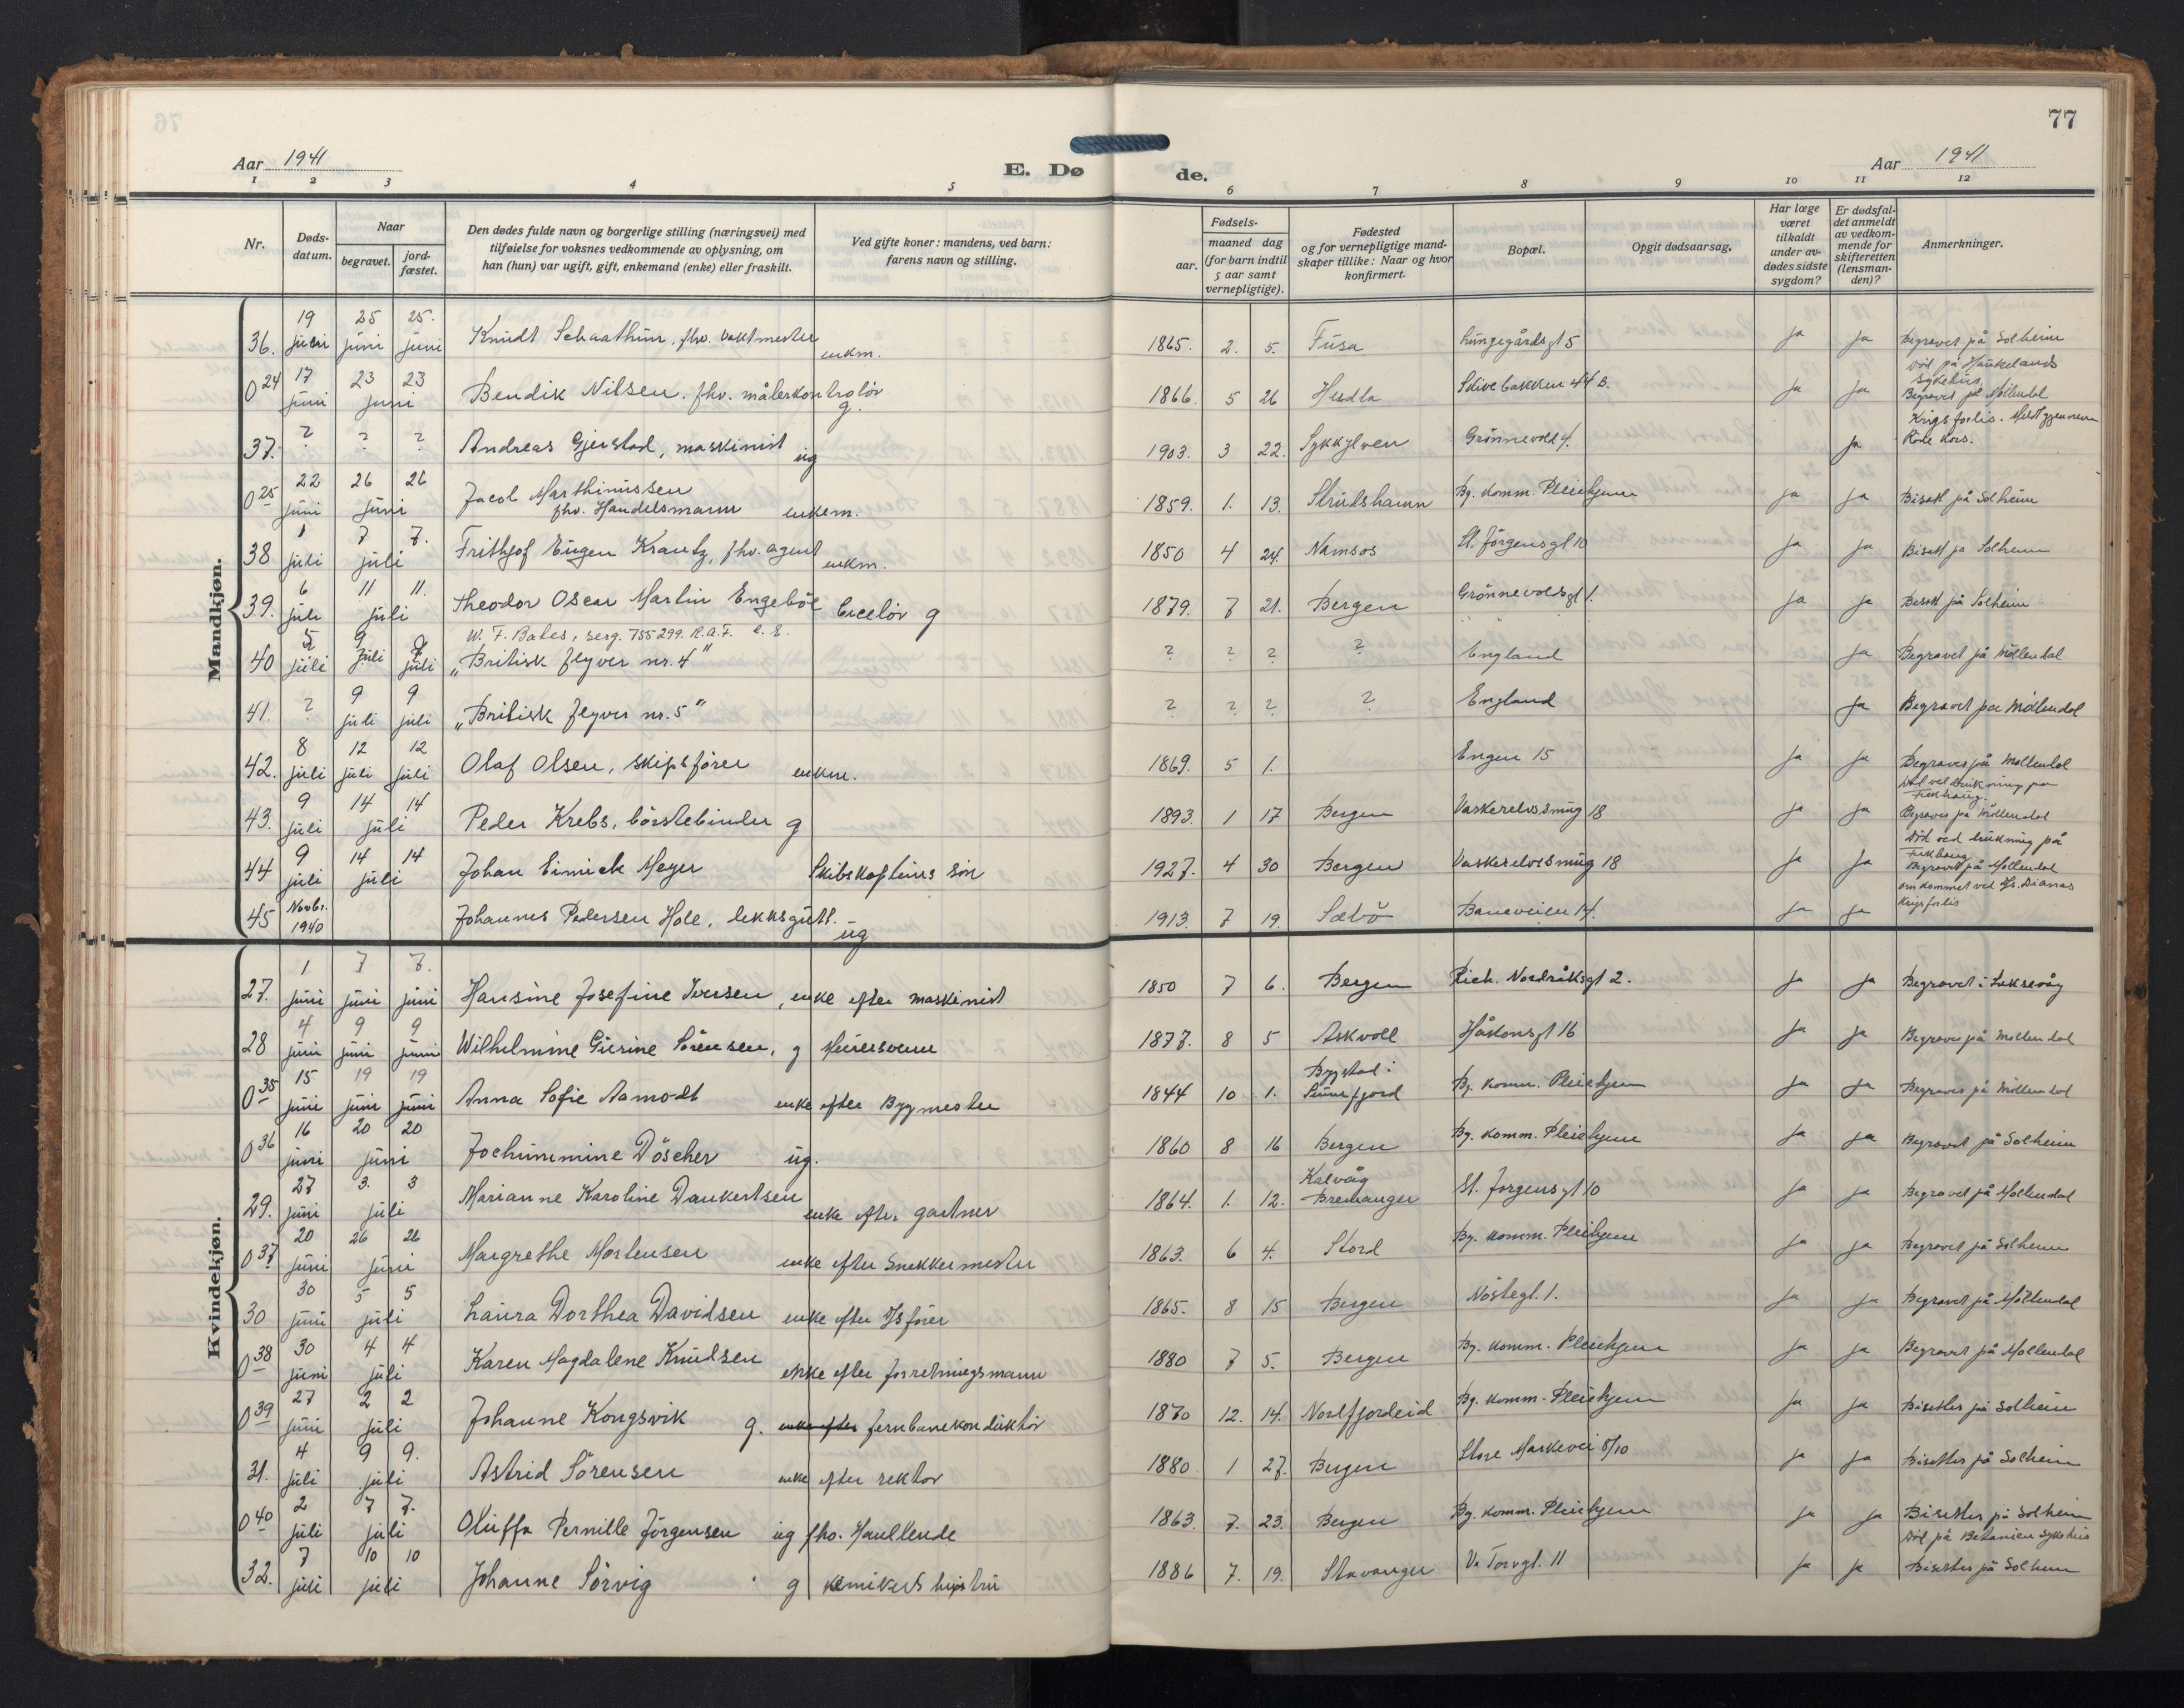 77
Aar 1941
E. Døde.
Aar 1941
1 2 3 4 5 6 7 8 9 10 11 12
Nr.
Døds-datum.
Naar
begravet.
jord-fæstet.
Den dødes fulde navn og borgerlige stilling (næringsvei) med
tilføielse for voksnes vedkommende av oplysning, om
han (hun) var ugift, gift, enkemand (enke) eller fraskilt.
Ved gifte koner: mandens, ved barn:
farens navn og stilling.
Fødsels-
aar.
maaned dag
(for barn indtil
5 aar samt
vernepligtige).
Fødested
og for vernepligtige mand-
skaper tillike: Naar og hvor
konfirmert.
Bopæl.
Opgit dødsaarsag.
Har læge
været
tilkaldt
under av-
dødes sidste
sygdom?
Er dødsfal-
det anmeldt
av vedkom-
mende for
skifteretten
(lensman-
den)?
Anmerkninger.
Mandkjøn.
36. 19 juni 25 juni 25. juni Knudt Schaathun, fhv. vaktmester enkm. 1865. 2. 5. Fusa Lungegårdsgt 5 ja ja Begravet på Solheim
Död på Haukelands sykehus.
0 24 17 juni 23 23 juni Bendik Nilsen. fhv. målerkontrolör g. 1866. 5 26 Herdla Skivebakken 44 B. ja ja Begravet på Möllendal
Krigsforlis. Meldt gjennem Röde Kors.
37. ? ? ? Andreas Gjerstad, maskinist ug 1903. 3 22. Sykkylven Grönnevold 4. ja
0 25 22 juni 26 26 juni Jacob Marthinussen fhv. Handelsmann enkem. 1859. 1. 13. Strudshamn By. komm. Pleiehjem ja ja Bisatt på Solheim
38 1 juli 7 7. juli Frithjof Eugen Krantz, fhv. agent enkm. 1850 4 24. Namsos St. Jörgensgt 10 ja ja Bisatt på Solheim
39. 6 juli 11 11. juli Theodor Oscar Martin Engeböe Ciselör g 1879. 7 21. Bergen Grönnevoldsgt 1. ja ja Bisatt på Solheim
W. F. Bates, serg. 755299. R.A.F. C.E.
40 5 juli 9 juli 9 juli „Britisk flyver nr. 4” ? ? ? ? England ja Begravet på Möllendal
41. ? 9 juli 9 juli „Britisk flyver nr. 5” ? ? ? ? England ja Begravet på Möllendal
42. 8 juli 12 juli 12 juli Olaf Olsen, skipsförer enkm. 1869. 5 1. Engen 15 ja ja Begraves på Möllendal
Död ved drukning på
43. 9 juli 14 14 juli Peder Krebs, börstebinder g 1893. 1 17 Bergen Vaskerelvssmug 18 ja ja Begraves på Möllendal
Död ved drukning på
44 9 juli 14 14 juli Johan Eimick Meyer Skibskapteins sön 1927. 4 30 Bergen Vaskerelvssmug 18 ja ja Begravet på Möllendal
omkommet ved D/s. Dianas Krigsforlis
45 Novbr. 1940 Johannes Pedersen Hole, dekksgutt. ug 1913. 7 19. Sæbö Baneveien 14. ja ja
Kvindekjøn.
27. 1 juni 7 juni 7. juni Hansine Josefine Iversen, enke efter maskinist 1850 7 6. Bergen Rich. Nordråksgt 2. ja ja Begravet i Laksevåg
28 4 juni 9 juni 9 juni Wilhelmine Gurine Sörensen, g Murersvenn 1877. 8 5 Askvoll Håkonsgt 16 ja ja Begraves på Möllendal
0 35 15 juni 19 juni 19 juni Anna Sofie Aamodt enke efter Bygmester 1844 10 1. Bygstad i Sunnfjord By. komm. Pleiehjem ja ja Begraves på Möllendal
0 36 16 juni 20 20 juni Jochummine Döscher ug. 1860 8 16 Bergen By. komm. Pleiehjem ja ja Begravet på Solheim
29. 27 juni 3. 3 juli Marianne Karoline Dankertsen enke efter gartner 1864. 1. 12. Kalvåg Bremanger St. Jörgensgt 10 ja ja Begravet på Möllendal
0 37 20 juni 26 26 juni Margrethe Mortensen enke efter Snekkermester 1863. 6 4. Stord By. komm. Pleiehjem ja ja Begravet på Solheim
30 30 juni 5 5 juli Laura Dorthea Davidsen enke efter D/s förer 1865. 8 15 Bergen Nöstegt. 1. ja ja Begravet på Möllendal
0 38 30 juni 4 4 juli Karen Magdalene Knudsen enke efter forretningsmann 1880 7 5. Bergen By. komm. Pleiehjem ja ja Begravet på Möllendal
0 39 27 juni 2 2 juli Johanne Kongsvik g. enke efter jernbanekonduktör 1870 12. 14. Nordfjordeid By. komm. Pleiehjem ja ja Bisettes på Solheim
31. 4 juli 9 9. juli Astrid Sörensen enke efter rektor 1880 1 27. Bergen Store Markevei 8/10 ja ja Bisettes på Solheim
0 40 2 juli 7 7. juli Oluffa Pernille Jörgensen ug fhv. Handlende 1863. 7. 23. Bergen By. komm. Pleiehjem ja ja Bisettes på Solheim
Död på Betanien sykehus
32. 7 juli 10 10 juli Johanne Sörvig g kemikers hustru 1886 7. 19. Stavanger V. Torvgt. 11 ja ja Bisettes på Solheim